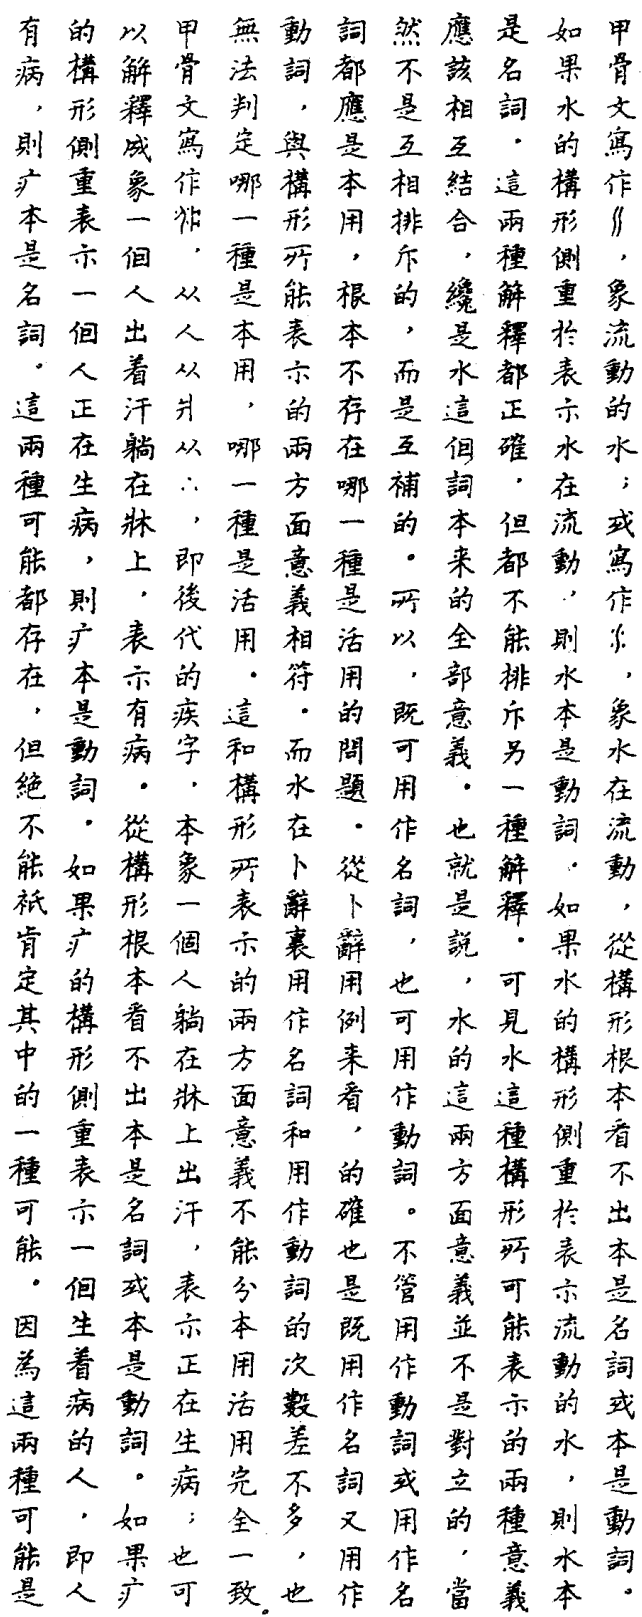 甲骨文寫作，象流動的水；或寫作，象水在流動，從構形根本看不出本是名詞或本是動詞。
如果水的構形側重於表示水在流動，則水本是動詞。如果水的構形側重於表示流動的水，則水本
是名詞。這兩種解釋都正確，但都不能排斥另一種解釋。可見水這種構形所可能表示的兩種意義
應該相互結合，纔是水這個詞本来的全部意義。也就是説，水的這兩方面意義並不是對立的，當
然不是互相排斥的，而是互補的。所以，既可用作名詞，也可用作動詞。不管用作動詞或用作名
詞都應是本用，根本不存在哪一種是活用的問題。從卜辭用例来看，的確也是既用作名詞又用作
動詞，與構形所能表示的兩方面意義相符。而水在卜辭裏用作名詞和用作動詞的次數差不多，也
無法判定哪一種是本用，哪一種是活用。這和構形所表示的兩方面意義不能分本用活用完全一致。
甲骨文寫作，从人从爿从∴，即後代的疾字，本象一個人躺在牀上出汗，表示正在生病；也可
以解釋成象一個人出着汗躺在牀上，表示有病。從構形根本看不出本是名詞或本是動詞。如果疒
的構形側重表示一個人正在生病，則疒本是動詞。如果疒的構形側重表示一個生着病的人，即人
有病，則疒本是名詞。這兩種可能都存在，但絕不能衹肯定其中的一種可能。因為這兩種可能是